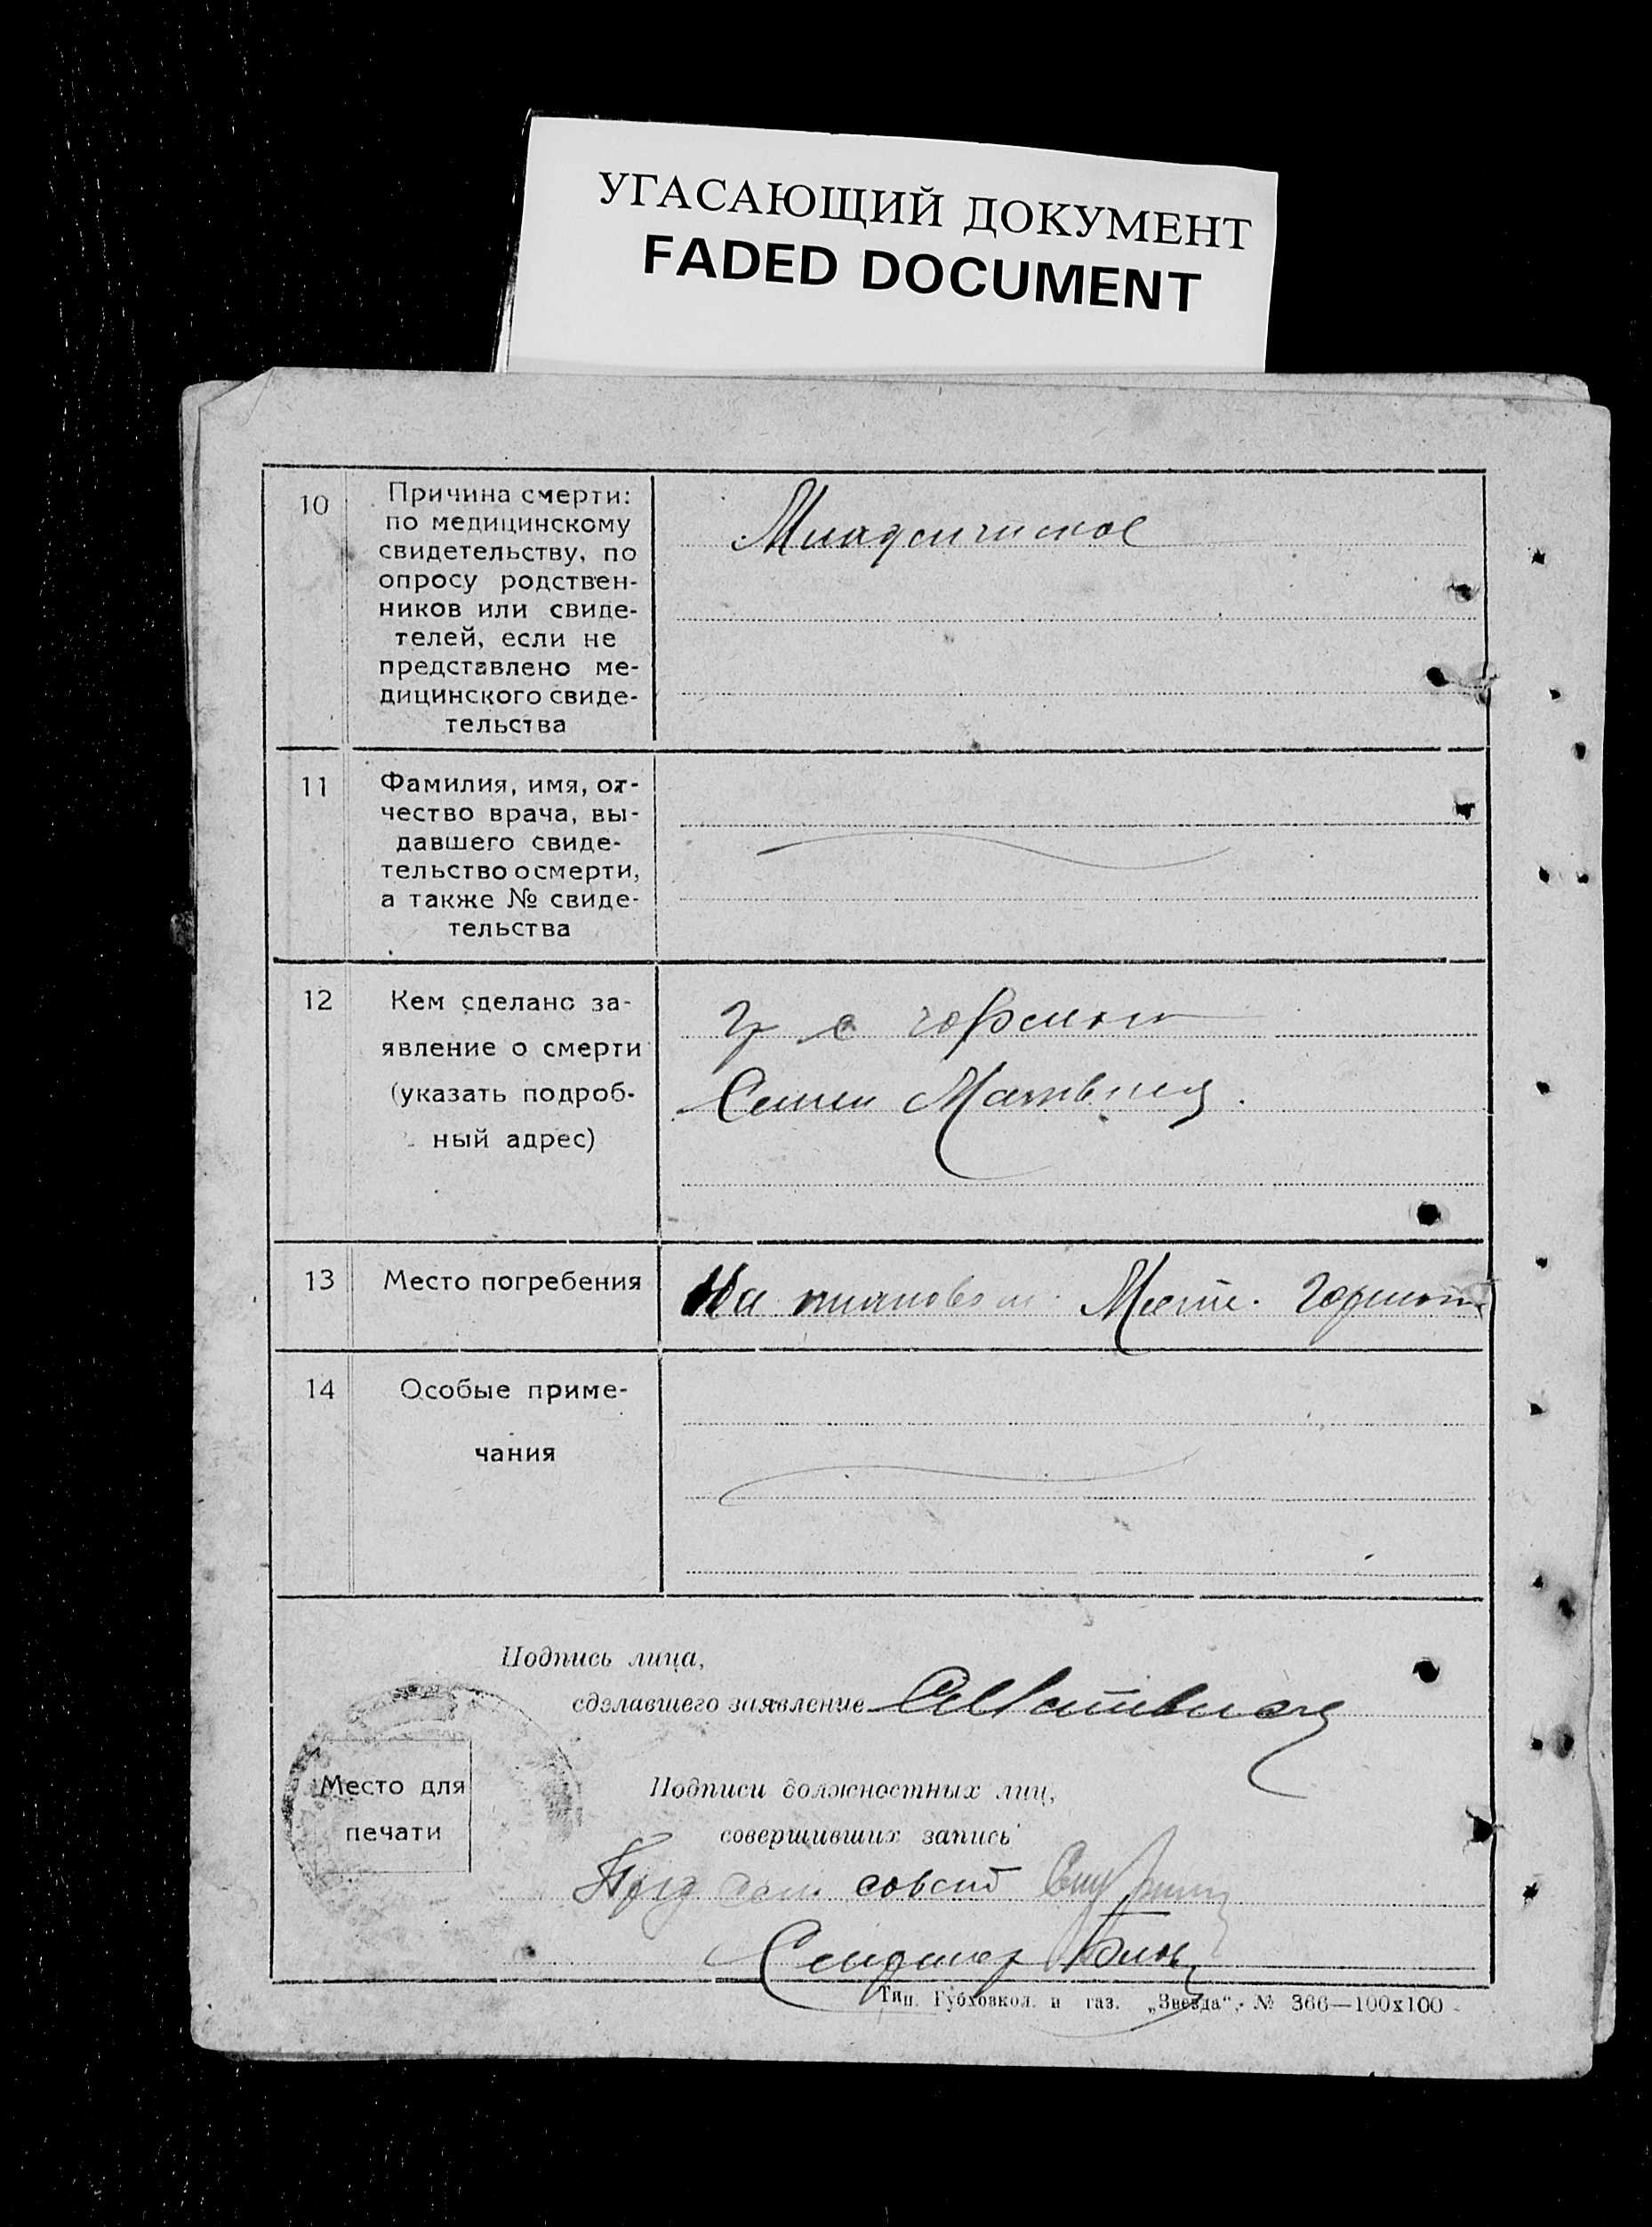 УГАСАЮЩИЙ ДОКУМЕНТ
FADED DOCUMENT
10
Причина смерти:
по медицинскому
свидетельству, по
опросу родствен-
ников или свиде-
телей, если не
представлено ме-
дицинского свиде-
тельства
Младенческое
11
Фамилия, имя, от-
чество врача, вы-
давшего свиде-
тельство о смерти,
а также № свиде-
тельства
12
Кем сделано за-
явление о смерти
(указать подроб-
ный адрес)
гр с
Семен Матвеич.
13
Место погребения
На
14
Особые приме-
чания
Подпись лица,
сделавшего заявление
Место для
печати
Подписи должностных лиц,
совершивших запись
Пред совета
Секретарь
Тип. Губховкол. и газ. „Звезда“, № 366—100х100